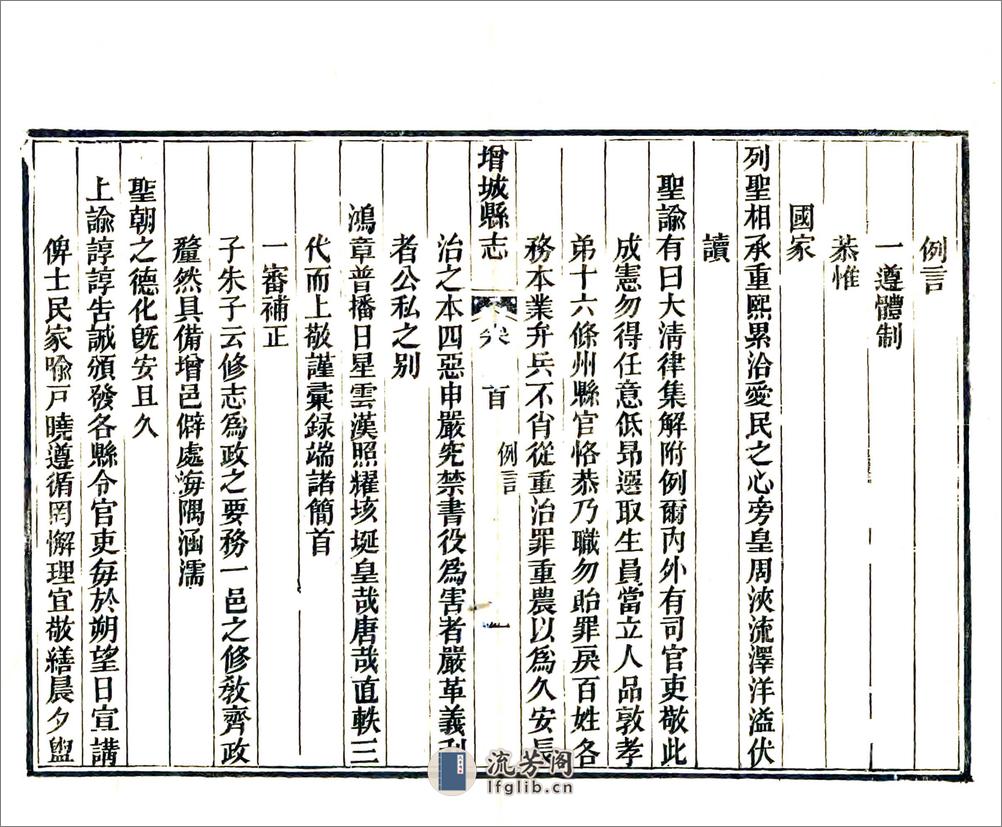 例言
一遵體制
恭惟
國家
列聖相承重熙累洽愛民之心旁皇周浹流澤洋溢伏
讀
聖諭有曰大淸律集解附例爾內外有司官吏敬此
成憲勿得任意低昂選取生員當立人品敦孝
弟十六條州縣官恪恭乃職勿貽罪戾百姓各
務本業弁兵不肖從重治罪重農以爲久安長
增城縣志
卷首
例言
一
治之本四惡申嚴究禁書役爲害者嚴革義利
者公私之別
鴻章普播日星雲漢照耀垓埏皇哉唐哉直軼三
代而上敬謹彙録端諸簡首
一審補正
子朱子云修志爲政之要務一邑之修敎齊政
釐然具備增邑僻處海隅涵濡
聖朝之德化旣安且久
上諭諄諄告誡頒發各縣令官吏每於朔望日宣講
俾士民家喻戸曉遵循罔懈理宜敬繕晨夕盥
流芳阁
lfglib.cn